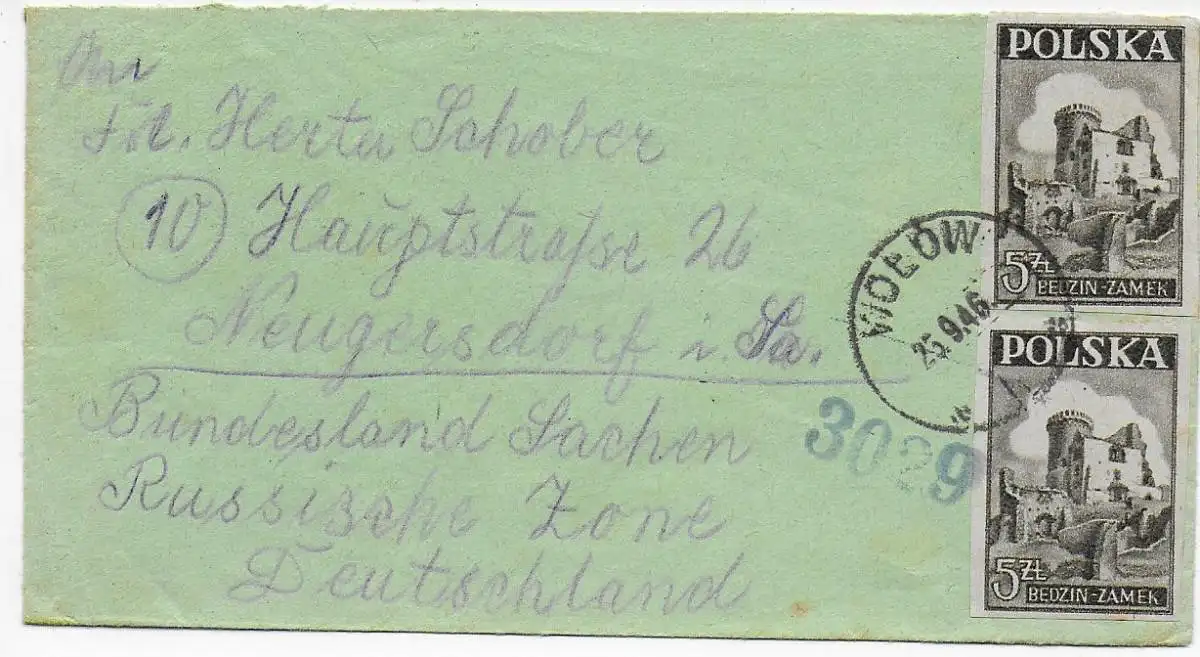 An
Frl. Herta Schober
10 Hauptstraße 26
Neugersdorf i. Sa.
Bundesland Sachen
Russische Zone
Deutschland
POLSKA
5 ZŁ
BĘDZIN-ZAMEK
WOŁÓW
25.9.46
3029
POLSKA
5 ZŁ
BĘDZIN-ZAMEK